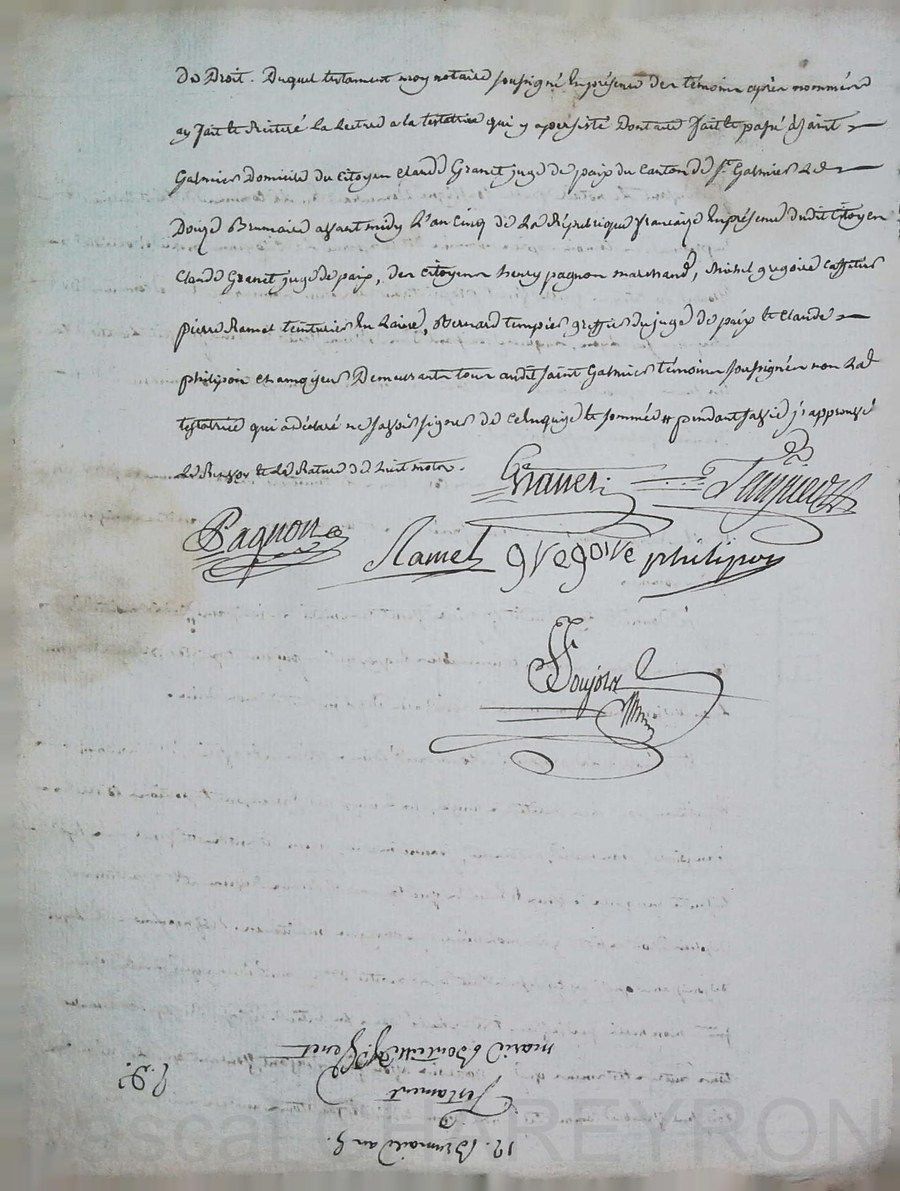 de Droit. Duquel testament moy notaire soussigné en présence des témoins après nommés
ay fait et réitéré la lecture a la testatrice qui y a persisté dont acte fait et passé à saint
Galmier domicile du citoyen claude Granet juge de paix du canton de st. Galmier le
Douze Brumaire avant midy L'an cinq de la République française en présence dudit citoyen
Claude Granet juge de paix, des citoyens henry pagnon marchand, michel gregoire caffetier
pierre Ramel teinturier en laine, Bernard greffier du juge de paix et claude
philipon chamoyseur Demeurants tous audit saint Galmier témoins soussignés non la
testatrice qui a déclaré ne savoir signer de ce enquise et sommée pendant sa vie j'approuve
le et la Rature de huit mots.
Granet
Pagnon Ramel gregoire philipon
12. Brumaire an 5.
Testament
marie